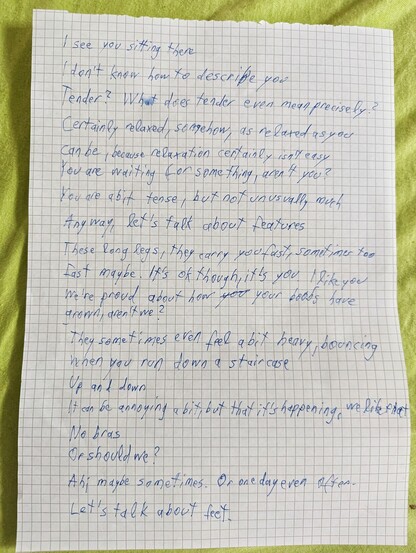 I see you sitting there
I don't know how to describe you
Tender? What does tender even mean precisely?
Certainly relaxed, somehow, as relaxed as you
can be, because relaxation certainly isn't easy
You are waiting for something, aren't you?
You are a bit tense, but not unusually much
Anyway, let's talk about features
These long legs, they carry you fast, sometimes too
fast maybe. It's ok though, it's you I like you
We're proud about how your boobs have
grown, aren't we?
They sometimes even feel a bit heavy, bouncing
when you run down a staircase
Up and down
It can be annoying a bit, but that it's happening, we like that
No bras
Or should we?
Ah, maybe sometimes. Or one day even often.
Let's talk about feet.